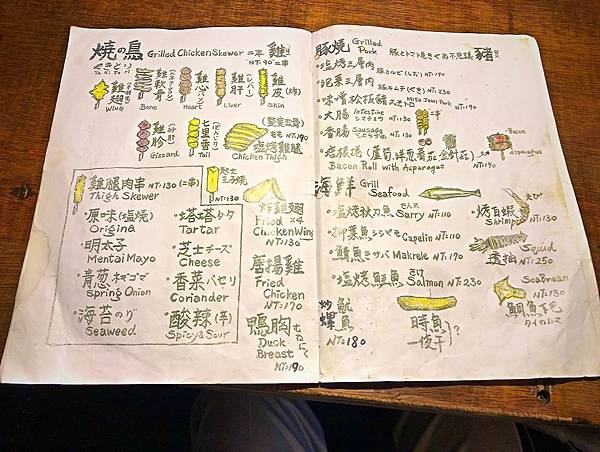 燒の鳥 Grilled Chicken Skewer 二串 雞
やきとり NT:90 二串
Ya Ki To Ri
雞翅
WING
雞軟骨
Bone
雞心
Heart
雞肝
Liver
雞皮
Skin
雞胗
Gizzard
七里香
Tail
もも NT:190
塩烤雞腿
Chicken Thigh
雞腿肉串 NT:130 (二串)
Thigh Skewer
・原味(塩燒)
Origina
・明太子
Mentai Mayo
・青葱 ネギゴマ
Spring Onion
・海苔 のり
Seaweed
・塔塔 タタ
Tartar
・芝士 チーズ
Cheese
・香菜 パセリ
Coriander
・酸辣 (辛)
Spicy & Sour
NT:130
炸雞翅
Fried x4
Chicken Wing
NT:130
唐揚雞
Fried
Chicken
NT:170
鴨胸 むねにく
Duck
Breast
NT:190
豚燒 Grilled Pork 豬
・塩烤三層肉 豚カルビ(しお) NT:190
・泡菜三層肉 NT:230
・味噌松板豬 Miso Jowl Pork
・大腸 Intestine シマチョウ NT:130 二串
・香腸 Sausage NT:130
・培根捲 (蘆筍.洋葱.番茄.金針菇)
Bacon Roll with Asparagus NT:190
Bacon
Asparagus
海鮮 Grill
Seafood
・塩烤秋刀魚 さんま Sarry NT:130
・柳葉魚 シシャモ Capelin NT:110
・鯖魚 きサバ Makrele NT:170
・塩烤鮭魚 さけ Salmon NT:230
・烤白蝦 えび
Shrimps NT:130
Squid
透抽 NT:250
Sea Brean
NT:130
鯛魚下巴
タイのカマ
炒
螺
魷
魚
NT:180
時魚
一夜干
?